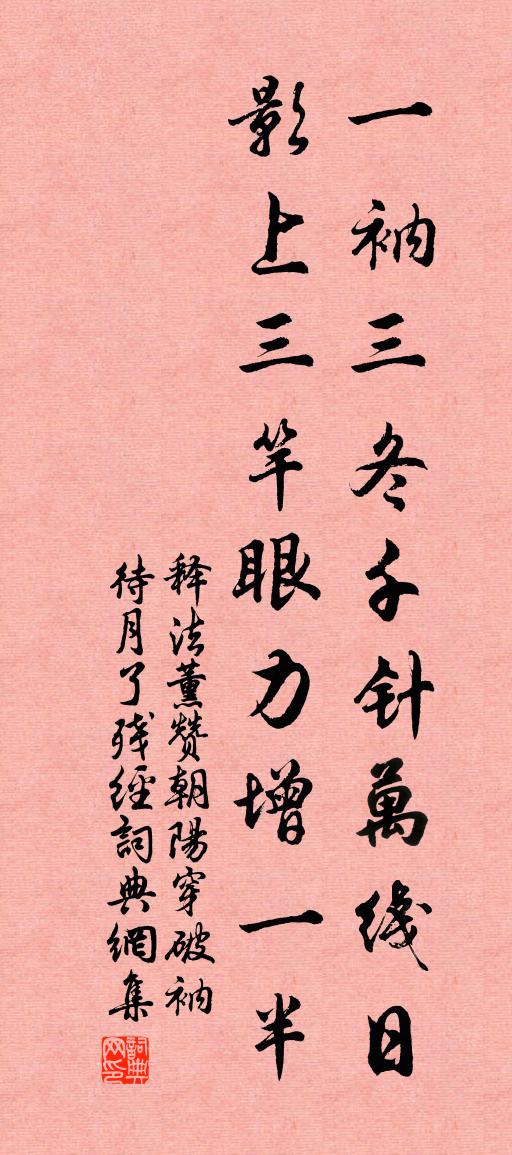 一衲三冬千针萬线日
影上三竿眼力增一半
释法薰赞朝陽穿破衲
待月了残經詞典網集
詞典网印